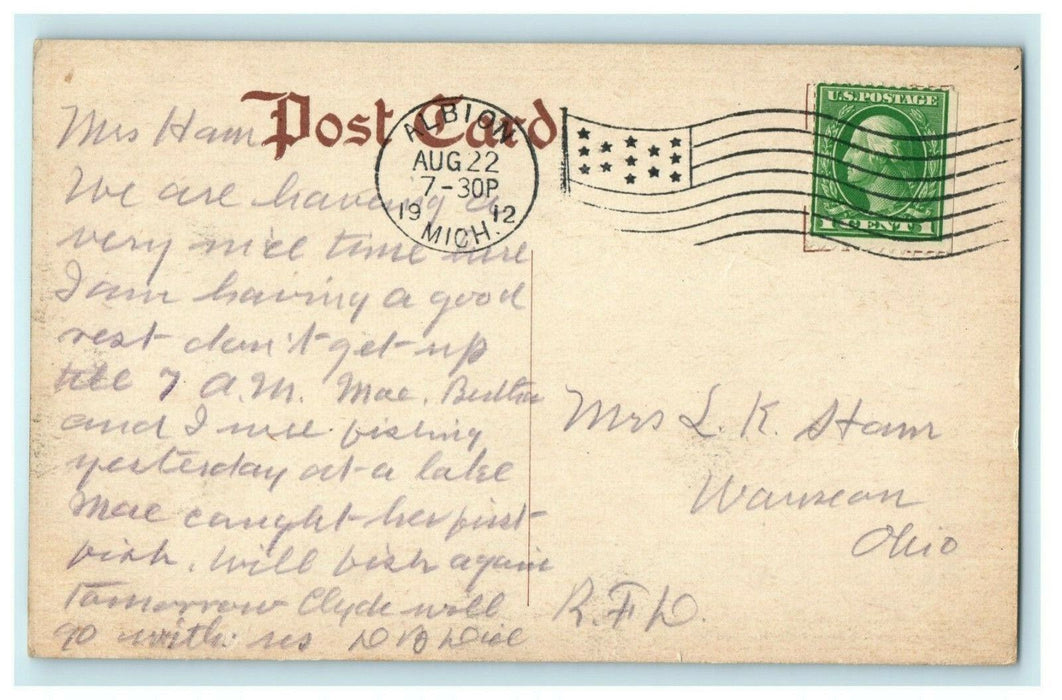 Post Card
ALBION
AUG. 22
7-30P
19 12
MICH.
U.S. POSTAGE
1 CENT 1
Mrs Ham
We are having a
very nice time here
I am having a good
rest don't get up
till 7 A.M. Mae, Bertha
and I were fishing
yesterday at a lake
Mae caught her first
fish. Will fish again
tomorrow Clyde will
go with us D B
Mrs L. K. Ham
Wauseon
Ohio
R. F. D.